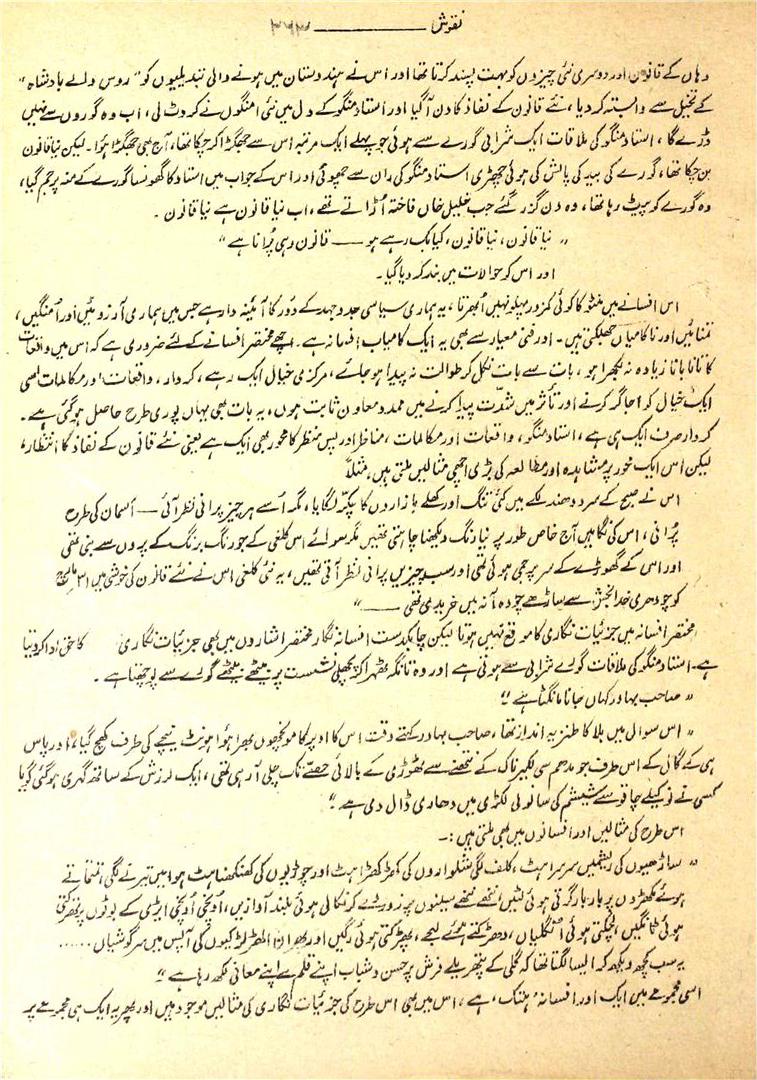 نقوش ——— ۳۶۳
وہاں کے قانون اور دوسری نئی چیزوں کو بہت پسند کرتا تھا اور اس نے ہندوستان میں ہونے والی تبدیلیوں کو " روس والے بادشاہ "
کے تخیل سے وابستہ کر دیا، نئے قانون کے نفاذ کا دن آگیا اور استاد منگو کے دل میں نئی امنگوں نے کروٹ لی، اب وہ گوروں سے نہیں
ڈرے گا، استاد منگو کی ملاقات ایک شرابی گورے سے ہوئی جو پہلے ایک مرتبہ اس سے جھگڑا کر چکا تھا، آج بھی جھگڑا ہوا۔ لیکن نیا قانون
بن چکا تھا، گورے کی بید کی پالش کی ہوئی چھڑی استاد منگو کی ران سے چھوئی اور اس کے جواب میں استاد کا گھونسا گورے کے منہ پر جم گیا،
وہ گورے کو پیٹ رہا تھا، وہ دن گزر گئے جب خلیل خاں فاختہ اُڑاتے تھے، اب نیا قانون ہے نیا قانون۔
" نیا قانون، نیا قانون، کیا بک رہے ہو —— قانون وہی پُرانا ہے "
اور اس کو حوالات میں بند کر دیا گیا۔
اس افسانے میں منٹو کا کوئی کمزور پہلو نہیں اُبھرتا، یہ ہماری سیاسی جدوجہد کے دَور کا آئینہ دار ہے جس میں ہماری آرزوئیں اور اُمنگیں،
تمنائیں اور ناکامیاں جھلکتی ہیں۔ اور فنی معیار سے بھی یہ ایک کامیاب افسانہ ہے۔ اچھے مختصر افسانے کے لئے ضروری ہے کہ اس میں واقعات
کا تانا بانا زیادہ نہ بکھرا ہو، بات سے بات نکل کر طوالت نہ پیدا ہو جائے، مرکزی خیال ایک رہے، کردار، واقعات اور مکالمات اسی
ایک خیال کو اجاگر کرنے اور تأثر میں شدّت پیدا کرنے میں ممد و معاون ثابت ہوں، یہ بات بھی یہاں پوری طرح حاصل ہوگئی ہے۔
کردار صرف ایک ہی ہے، استاد منگو، واقعات اور مکالمات، مناظر اور پس منظر کا محور بھی ایک ہے یعنی نئے قانون کے نفاذ کا انتظار،
لیکن اس ایک محور پر مشاہدہ اور مطالعہ کی بڑی اچھی مثالیں ملتی ہیں، مثلاً
اس نے صبح کے سرد دھندلکے میں کئی تنگ اور کھلے بازاروں کا چکّر لگایا، مگر اُسے ہر چیز پرانی نظر آئی — آسمان کی طرح
پُرانی، اس کی نگاہیں آج خاص طور پر نیا رنگ دیکھنا چاہتی تھیں مگر سوائے اس کلغی کے جو رنگ برنگ کے پروں سے بنی تھی
اور اس کے گھوڑے کے سر پر جمی ہوئی تھی اور سب چیزیں پرانی نظر آتی تھیں، یہ نئی کلغی اس نے نئے قانون کی خوشی میں ۳۱ مارچ
کو چودھری خدا بخش سے ساڑھے چودہ آنہ میں خریدی تھی —— "
مختصر افسانہ میں جزئیات نگاری کا موقع نہیں ہوتا لیکن چابکدست افسانہ نگار مختصر اشاروں میں بھی جزئیات نگاری کا حق ادا کر دیتا
ہے۔ استاد منگو کی ملاقات گورے شرابی سے ہوتی ہے اور وہ تانگہ ٹھہرا کر پچھلی نشست پر بیٹھے بیٹھے گورے سے پوچھتا ہے۔
" صاحب بہادر کہاں جانا مانگٹا ہے "
" اس سوال میں بلا کا طنزیہ انداز تھا، صاحب بہادر کہتے وقت اس کا اوپر کا مونچھوں بھرا ہوا ہونٹ نیچے کی طرف کھچ گیا، اور پاس
ہی کے گال کے اس طرف جو مدھم سی لکیر ناک کے نتھنے سے ٹھوڑی کے بالائی حصّے تک چلی آ رہی تھی، ایک لرزش کے ساتھ گہری ہوگئی گویا
کسی نے نوکیلے چاقو سے شیشم کی سانولی لکڑی میں دھاری ڈال دی ہے۔"
اس طرح کی مثالیں اور افسانوں میں بھی ملتی ہیں:۔
" ساڑھیوں کی ریشمیں سرسراہٹ، کلف لگی شلواروں کی کھڑکھڑاہٹ اور چوڑیوں کی کھنکھناہٹ ہوا میں تیرنے لگی، تمتماتے
ہوئے مکھڑوں پر بار بار گرتی ہوئی لٹیں، ننھے ننھے سینوں پر زور دے کر نکالی ہوئی بلند آوازیں، اُونچی اُونچی ایڑی کے بوٹوں پر تھرکتی
ہوئی ٹانگیں، لچکتی ہوئی اُنگلیاں، دھڑکتے ہوئے لہجے، پھڑکتی ہوئی رگیں اور پھر ان الھڑ لڑکیوں کی آپس میں سرگوشیاں......
یہ سب کچھ دیکھ کر ایسا لگتا تھا کہ گلی کے پتھریلے فرش پر حسن و شباب اپنے قلم سے اپنے معانی لکھ رہا ہے "
اسی مجموعے میں ایک اور افسانہ ' ہتک ' ہے، اس میں بھی اس طرح کی جزئیات نگاری کی مثالیں موجود ہیں اور پھر یہ ایک ہی مجموعے پر